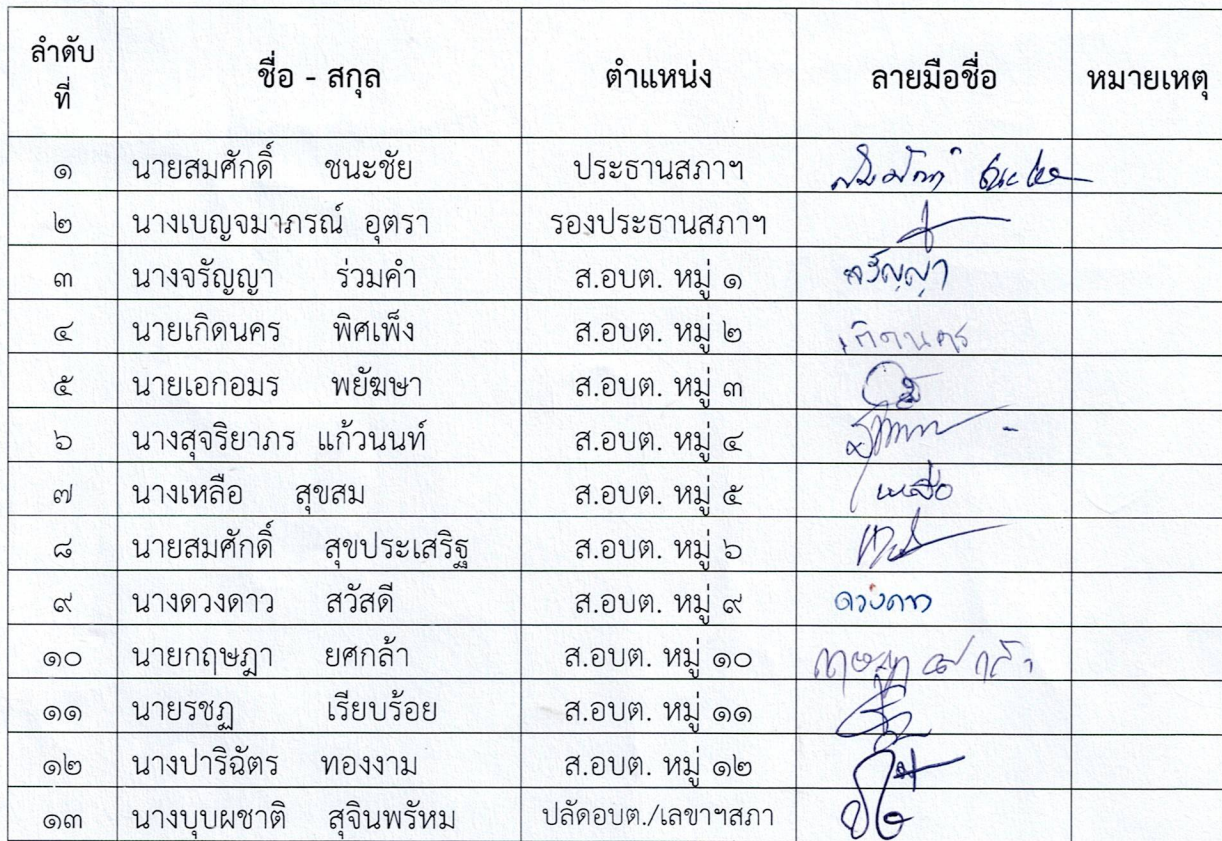 ลำดับที่ ชื่อ - สกุล ตำแหน่ง ลายมือชื่อ หมายเหตุ
๑ นายสมศักดิ์ ชนะชัย ประธานสภาฯ
๒ นางเบญจมาภรณ์ อุตรา รองประธานสภาฯ
๓ นางจรัญญา ร่วมคำ ส.อบต. หมู่ ๑ จรัญญา
๔ นายเกิดนคร พิศเพ็ง ส.อบต. หมู่ ๒ เกิดนคร
๕ นายเอกอมร พยัฆษา ส.อบต. หมู่ ๓
๖ นางสุจริยาภร แก้วนนท์ ส.อบต. หมู่ ๔
๗ นางเหลือ สุขสม ส.อบต. หมู่ ๕ เหลือ
๘ นายสมศักดิ์ สุขประเสริฐ ส.อบต. หมู่ ๖
๙ นางดวงดาว สวัสดี ส.อบต. หมู่ ๙ ดวงดาว
๑๐ นายกฤษฎา ยศกล้า ส.อบต. หมู่ ๑๐ กฤษฎา ยศกล้า
๑๑ นายรชฏ เรียบร้อย ส.อบต. หมู่ ๑๑
๑๒ นางปาริฉัตร ทองงาม ส.อบต. หมู่ ๑๒
๑๓ นางบุบผชาติ สุจินพรัหม ปลัดอบต./เลขาฯสภา